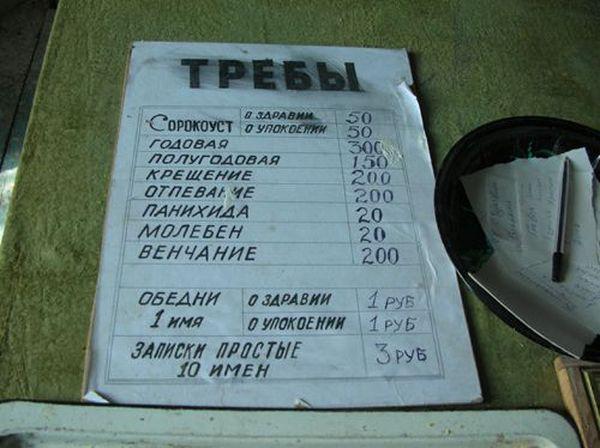 ТРЕБЫ
СОРОКОУСТ О ЗДРАВИИ 50
О УПОКОЕНИИ 50
ГОДОВАЯ 300
ПОЛУГОДОВАЯ 150
КРЕЩЕНИЕ 200
ОТПЕВАНИЕ 200
ПАНИХИДА 20
МОЛЕБЕН 20
ВЕНЧАНИЕ 200
ОБЕДНИ О ЗДРАВИИ 1 РУБ
1 ИМЯ О УПОКОЕНИИ 1 РУБ
ЗАПИСКИ ПРОСТЫЕ 3 РУБ
10 ИМЕН